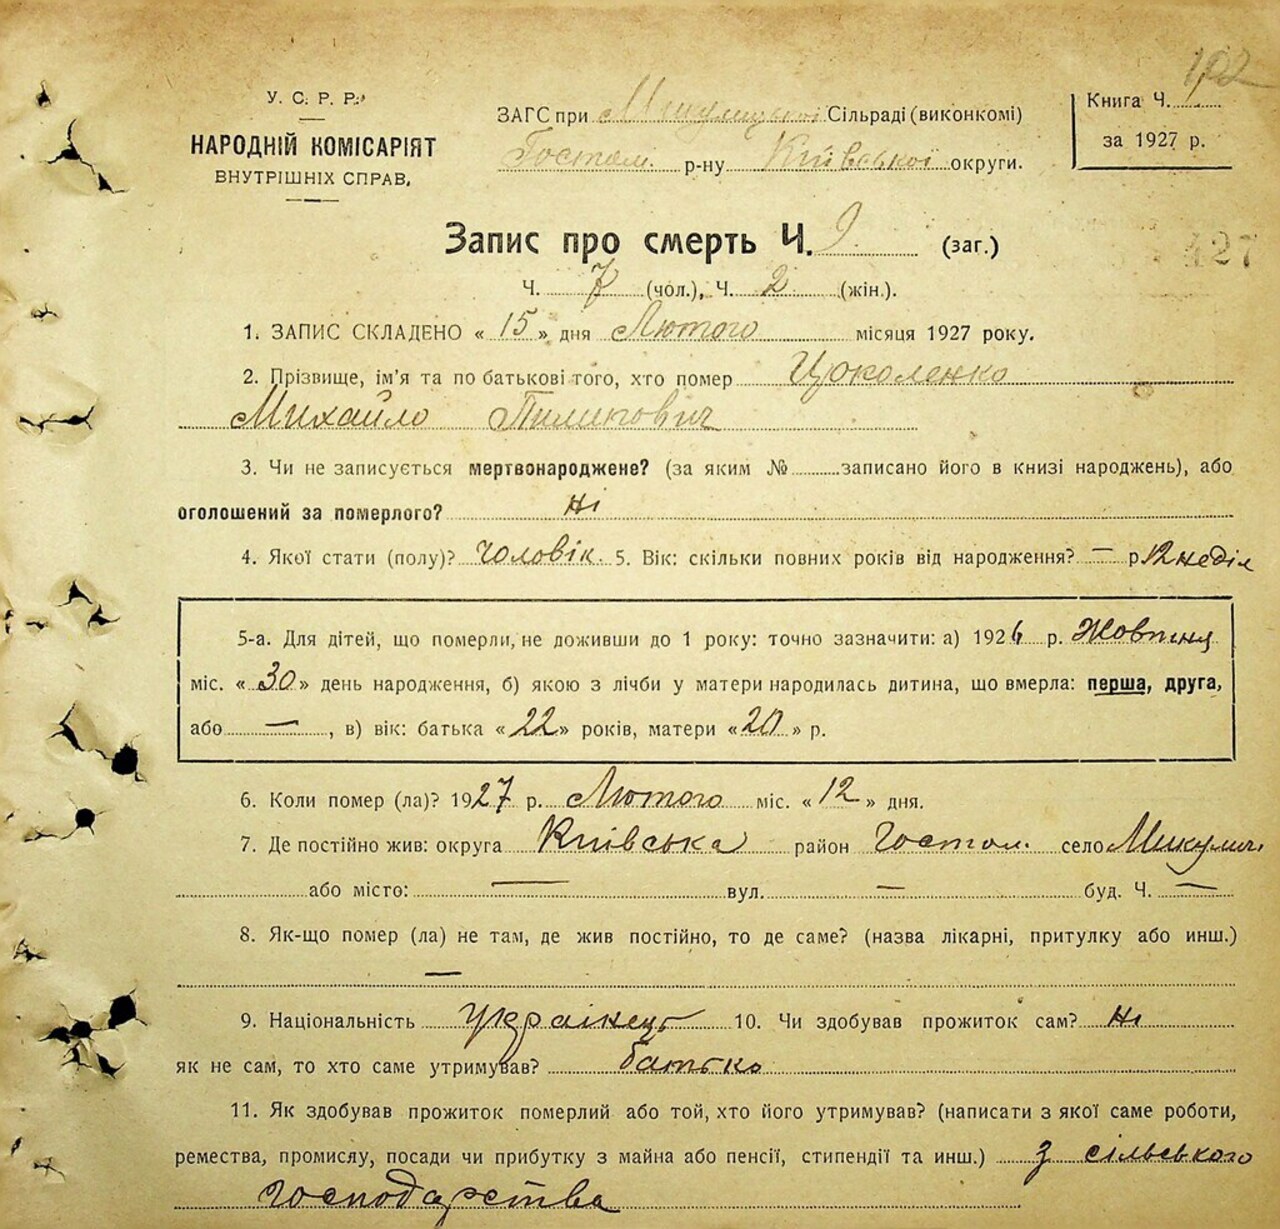 192
У. С. Р. Р.
НАРОДНІЙ КОМІСАРІЯТ
ВНУТРІШНІХ СПРАВ.
ЗАГС при Микулицькій Сільраді (виконкомі)
Гостом. р-ну Київської округи.
Книга Ч. 1
за 1927 р.
Запис про смерть Ч. 9 (заг.)
427
Ч. 7 (чол.), Ч. 2 (жін.).
1. ЗАПИС СКЛАДЕНО « 15 » дня Лютого місяця 1927 року.
2. Прізвище, ім'я та по батькові того, хто помер Цоколенко
Михайло Пилипович
3. Чи не записується мертвонароджене? (за яким № записано його в книзі народжень), або
оголошений за померлого? Ні
4. Якої стати (полу)? чоловік. 5. Вік: скільки повних років від народження? — р. 12 неділ
5-а. Для дітей, що померли, не доживши до 1 року: точно зазначити: а) 1926 р. Жовтня
міс. « 30 » день народження, б) якою з лічби у матери народилась дитина, що вмерла: перша, друга,
або —, в) вік: батька « 22 » років, матери « 20 » р.
6. Коли помер (ла)? 1927 р. Лютого міс. « 12 » дня.
7. Де постійно жив: округа Київська район Гостом. село Микуличі
або місто: — вул. — буд. Ч. —
8. Як-що помер (ла) не там, де жив постійно, то де саме? (назва лікарні, притулку або инш.)
—
9. Національність Українець 10. Чи здобував прожиток сам? Ні
як не сам, то хто саме утримував? батько
11. Як здобував прожиток померлий або той, хто його утримував? (написати з якої саме роботи,
ремества, промислу, посади чи прибутку з майна або пенсії, стипендії та инш.) З сільського
господарства